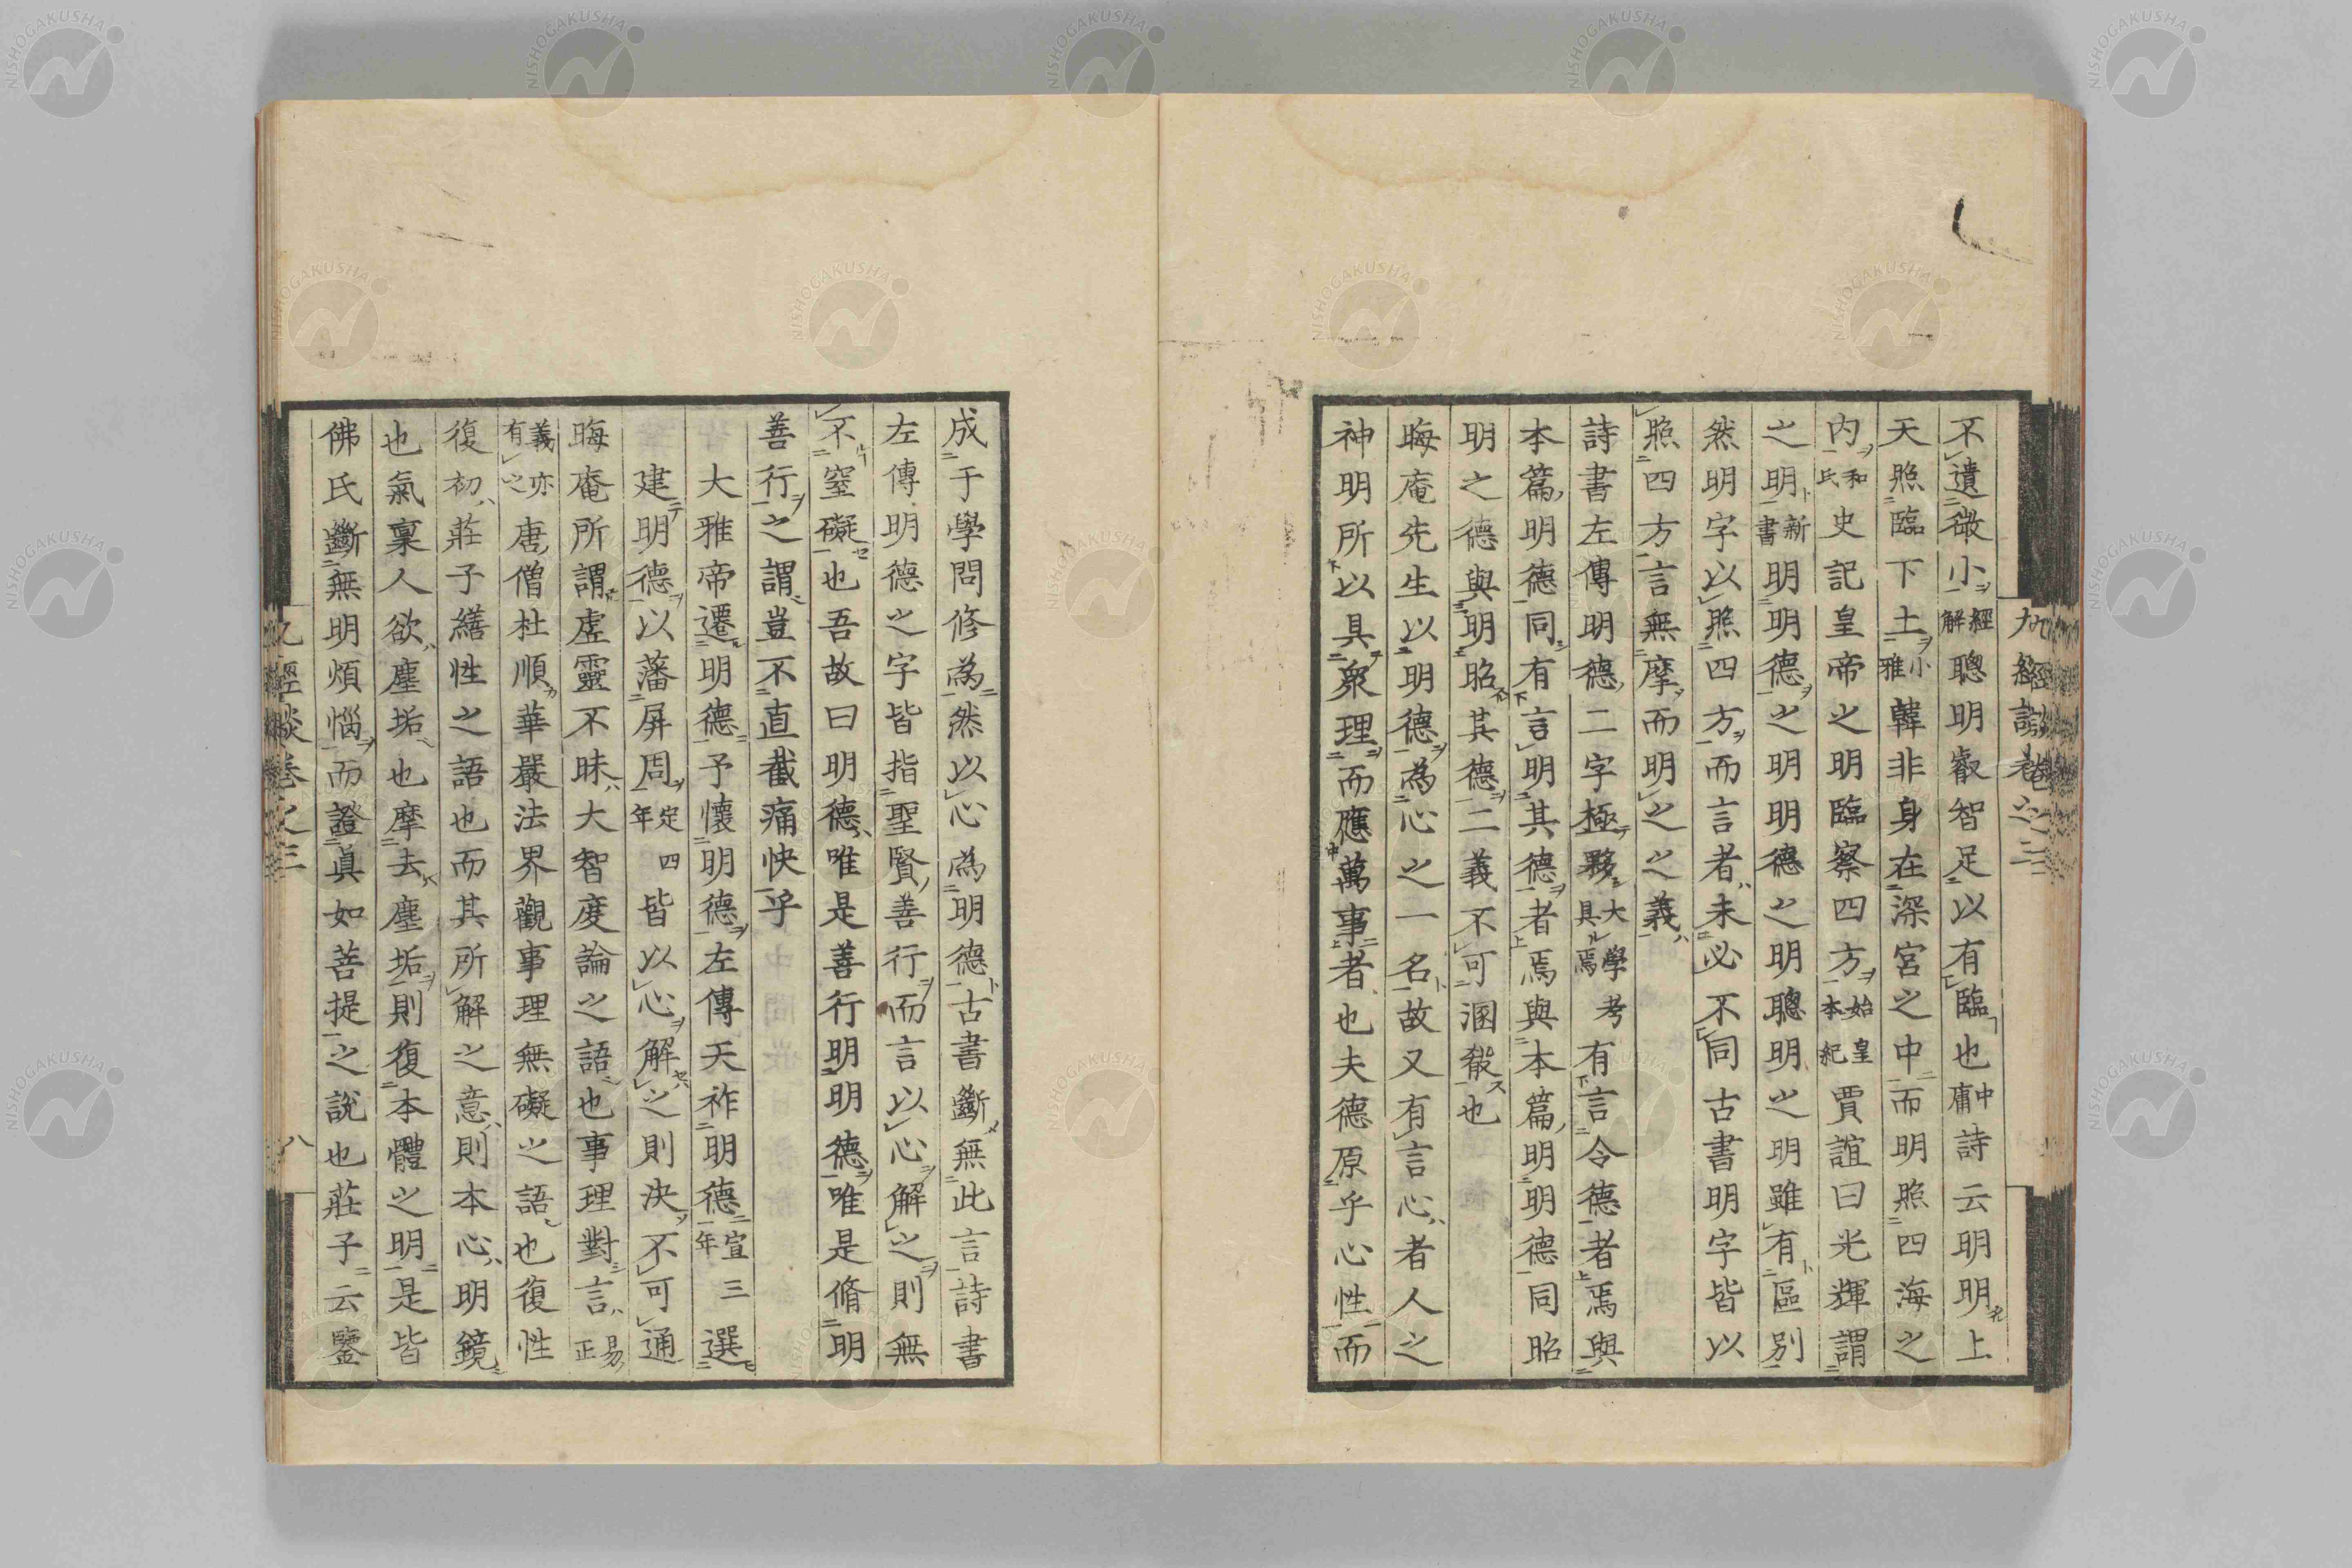 九經談卷之三
不遺微小經解聰明叡智足以有臨也中庸詩云明明上
天照臨下土小雅韓非身在深宮之中而明照四海之
内和氏史記皇帝之明臨察四方始皇本紀賈誼曰光輝謂
之明新書明明德之明明德之明聰明之明雖有區別
然明字以照四方而言者未必不同古書明字皆以
照四方言無摩而明之之義
詩書左傳明德二字極夥大學考具焉有言令德者焉與
本篇明德同有言明其德者焉與本篇明明德同昭
明之德與明昭其德二義不可溷殽也
晦庵先生以明德為心之一名故又有言心者人之
神明所以具衆理而應萬事者也夫德原乎心性而
成于學問修為然以心為明德古書斷無此言詩書
左傳明德之字皆指聖賢善行而言以心解之則無
不窒礙也吾故曰明德唯是善行明明德唯是脩明
善行之謂豈不直截痛快乎
大雅帝遷明德予懷明德左傳天祚明德宣三年選
建明德以藩屏周定四年皆以心解之則決不可通
晦庵所謂虛靈不昧大智度論之語也事理對言易正
義亦有之唐僧杜順華嚴法界觀事理無礙之語也復性
復初莊子繕性之語也而其所解之意則本心明鏡
也氣稟人欲塵垢也摩去塵垢則復本體之明是皆
佛氏斷無明煩惱而證眞如菩提之說也莊子云鑒
九經談卷之三
八
NISHOGAKUSHA